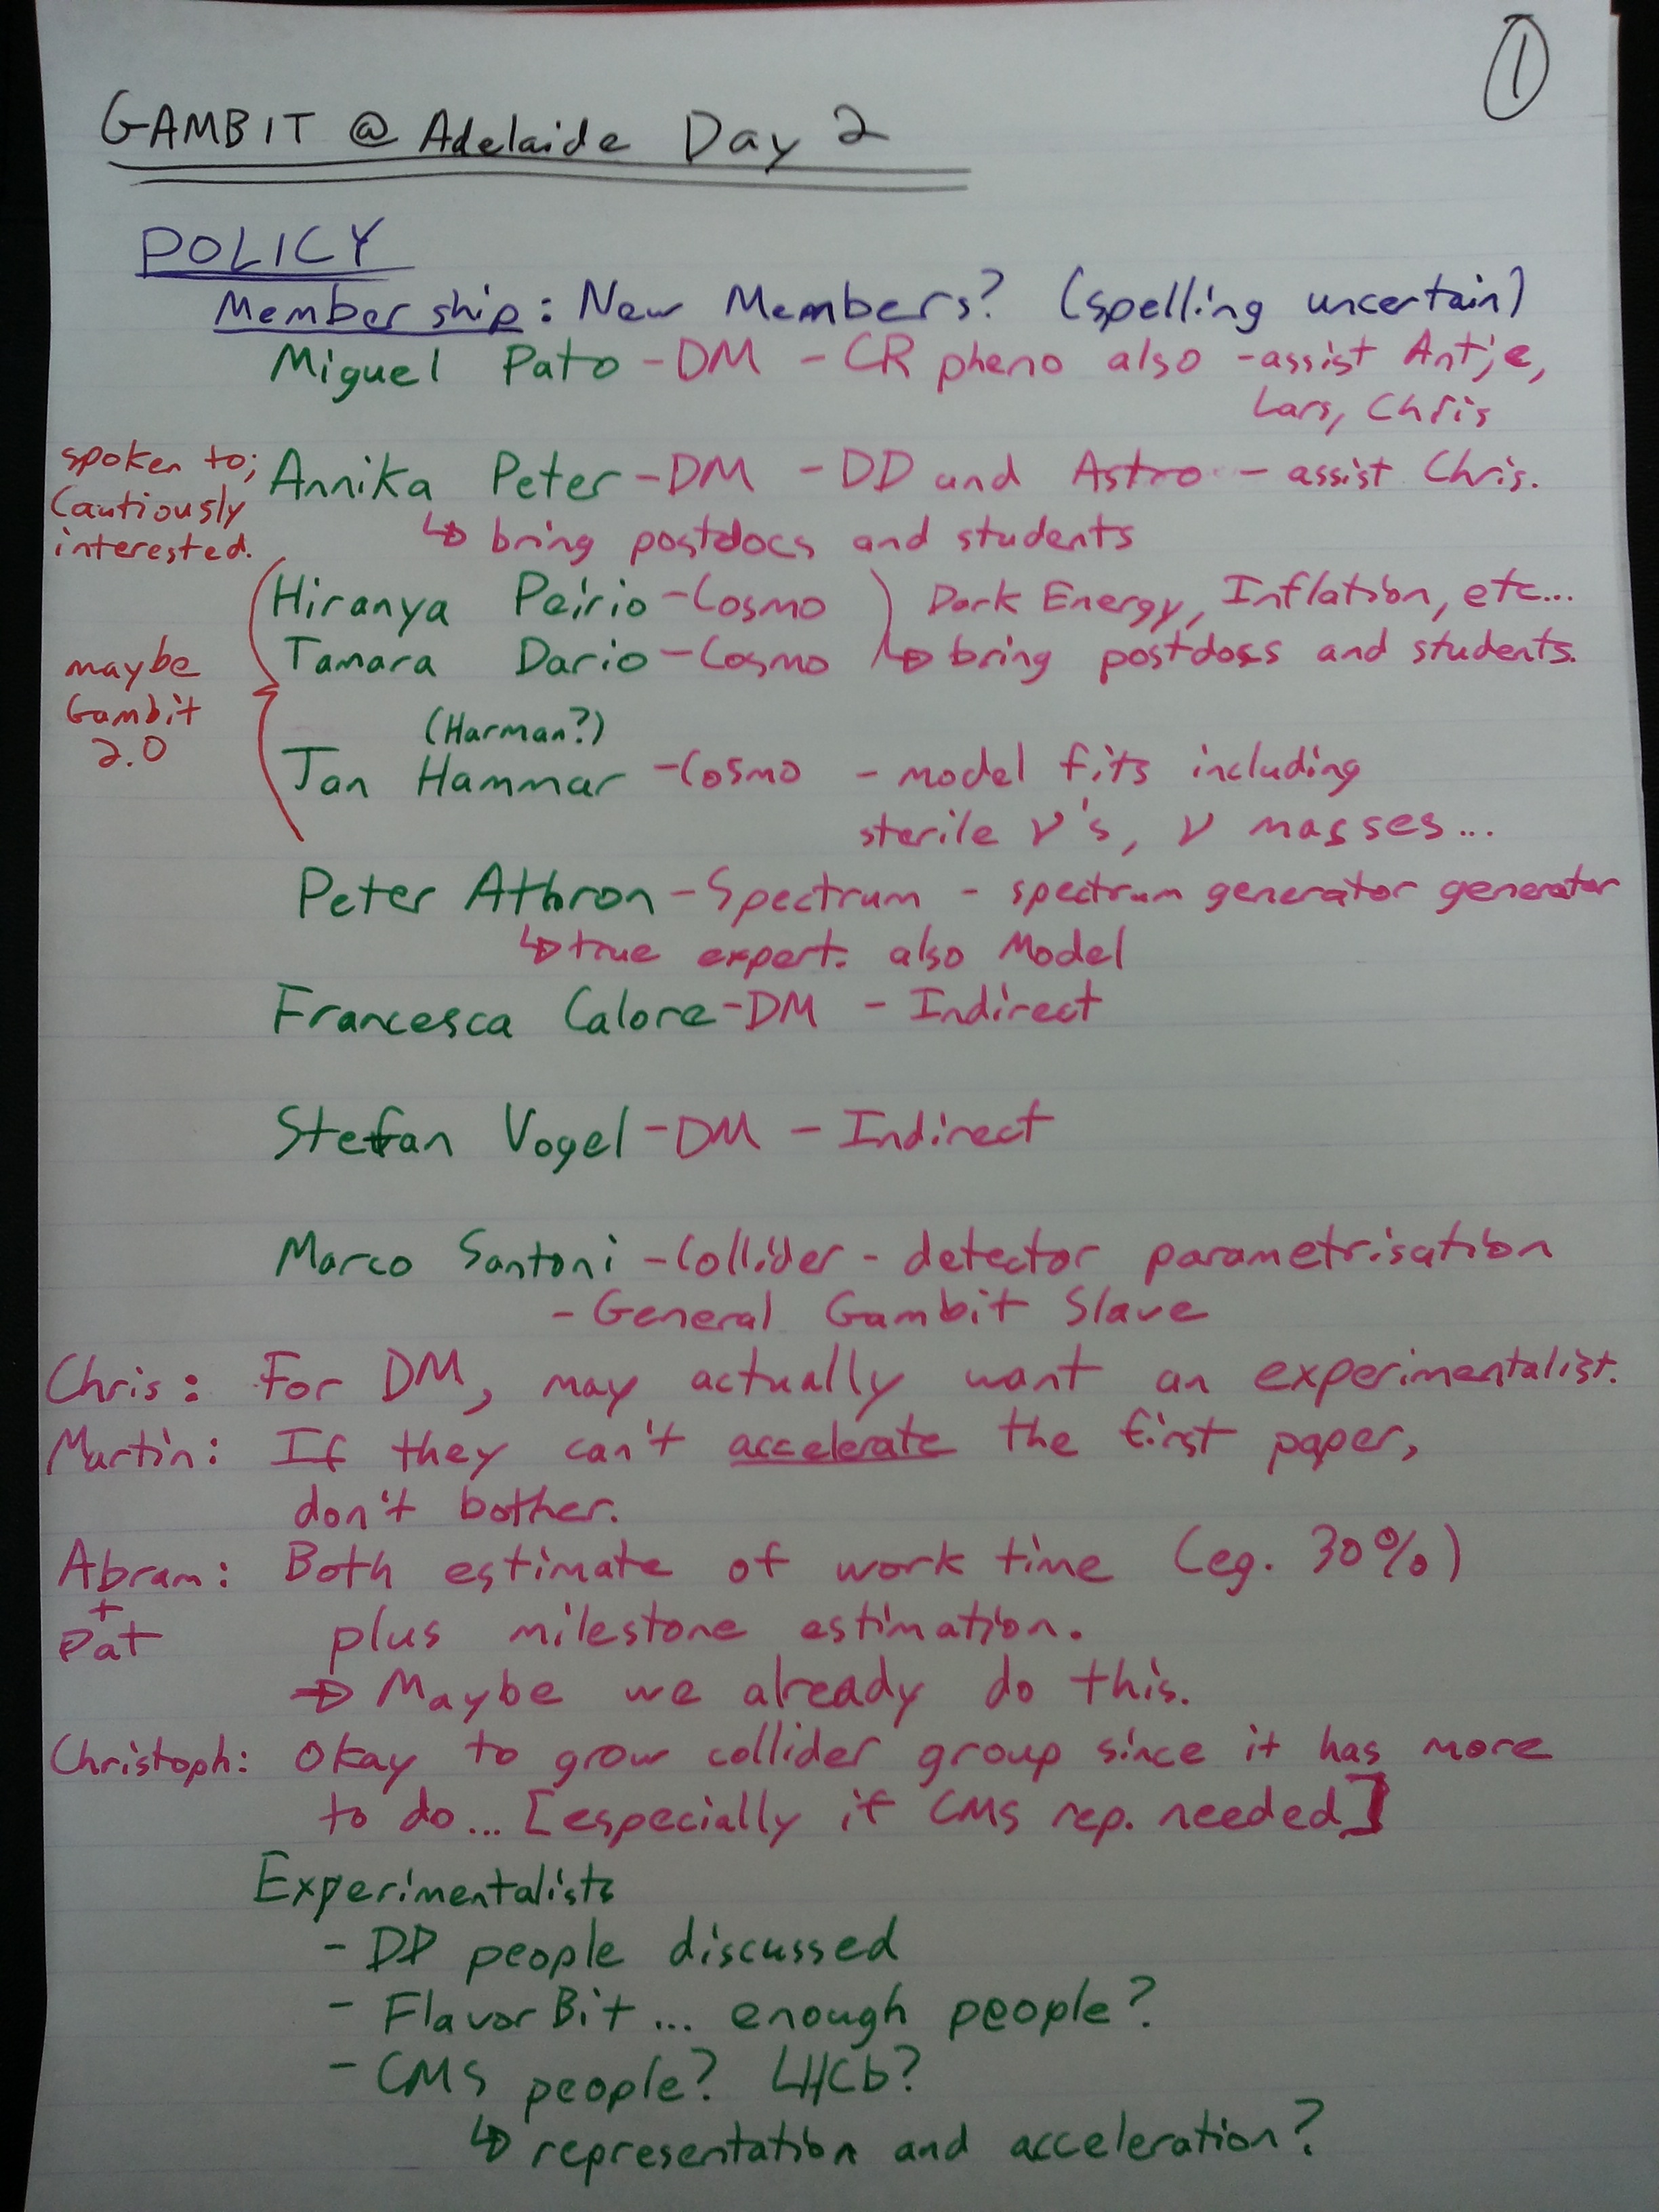 ①
GAMBIT @ Adelaide Day 2
POLICY
Membership: New Members? (spelling uncertain)
Miguel Pato - DM - CR pheno also - assist Antje,
Lars, Chris
spoken to;
Cautiously
interested.
Annika Peter - DM - DD and Astro - assist Chris.
↳ bring postdocs and students
maybe
Gambit
2.0
Hiranya Peirio - Cosmo ) Dark Energy, Inflation, etc...
Tamara Dario - Cosmo ↳ bring postdocs and students.
(Harman?)
Jan Hammar - Cosmo - model fits including
sterile ν's, ν masses...
Peter Athron - Spectrum - spectrum generator generator
↳ true expert. also Model
Francesca Calore - DM - Indirect
Stefan Vogel - DM - Indirect
Marco Santoni - Collider - detector parametrisation
- General Gambit Slave
Chris: For DM, may actually want an experimentalist.
Martin: If they can't accelerate the first paper,
don't bother.
Abram: Both estimate of work time (eg. 30%)
+
Pat plus milestone estimation.
→ Maybe we already do this.
Christoph: Okay to grow collider group since it has more
to do... [especially if CMS rep. needed]
Experimentalists
- DD people discussed
- FlavorBit... enough people?
- CMS people? LHCb?
↳ representation and acceleration?